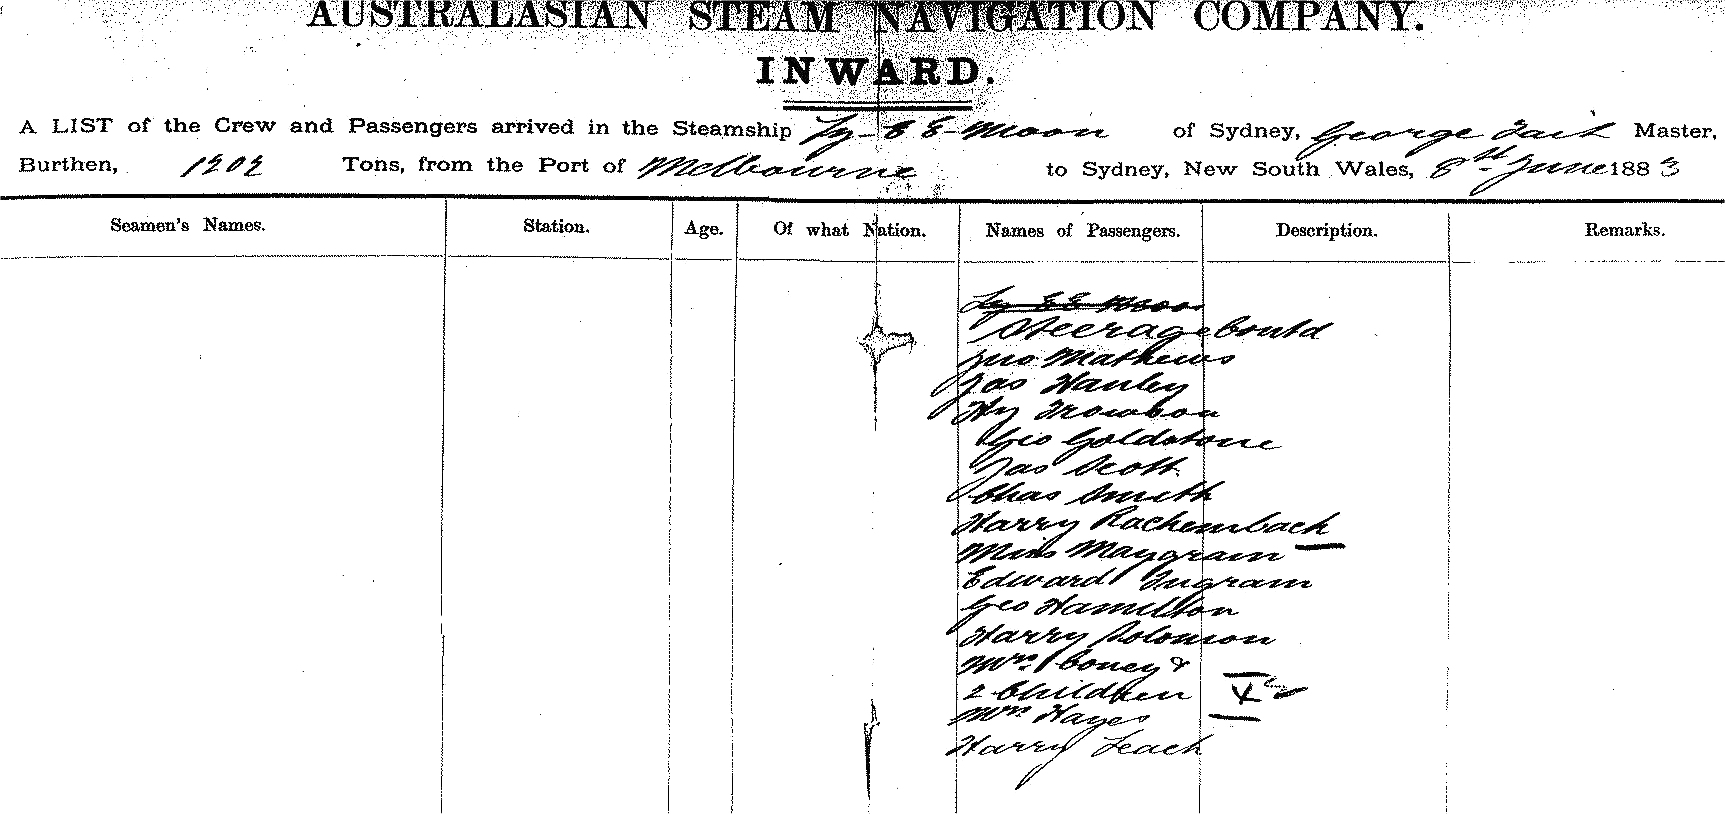 AUSTRALASIAN STEAM NAVIGATION COMPANY.
INWARD.
A LIST of the Crew and Passengers arrived in the Steamship Ly-E E-Moon of Sydney, George Tait Master,
Burthen, 1202 Tons, from the Port of Melbourne to Sydney, New South Wales, 8th June 1883
Seamen's Names. Station. Age. Of what Nation. Names of Passengers. Description. Remarks.
Ly EE Moon
Steerage Contd
Jno Mathews
Jas Hanley
Hy
Geo Goldstone
Jas Scott
Chas Smith
Harry Rachembach
Miss Maygram
Edward Ingram
Geo Hamilton
Harry Solomon
Mrs Coney &
2 Children
Mrs Hayes
Harry Leach